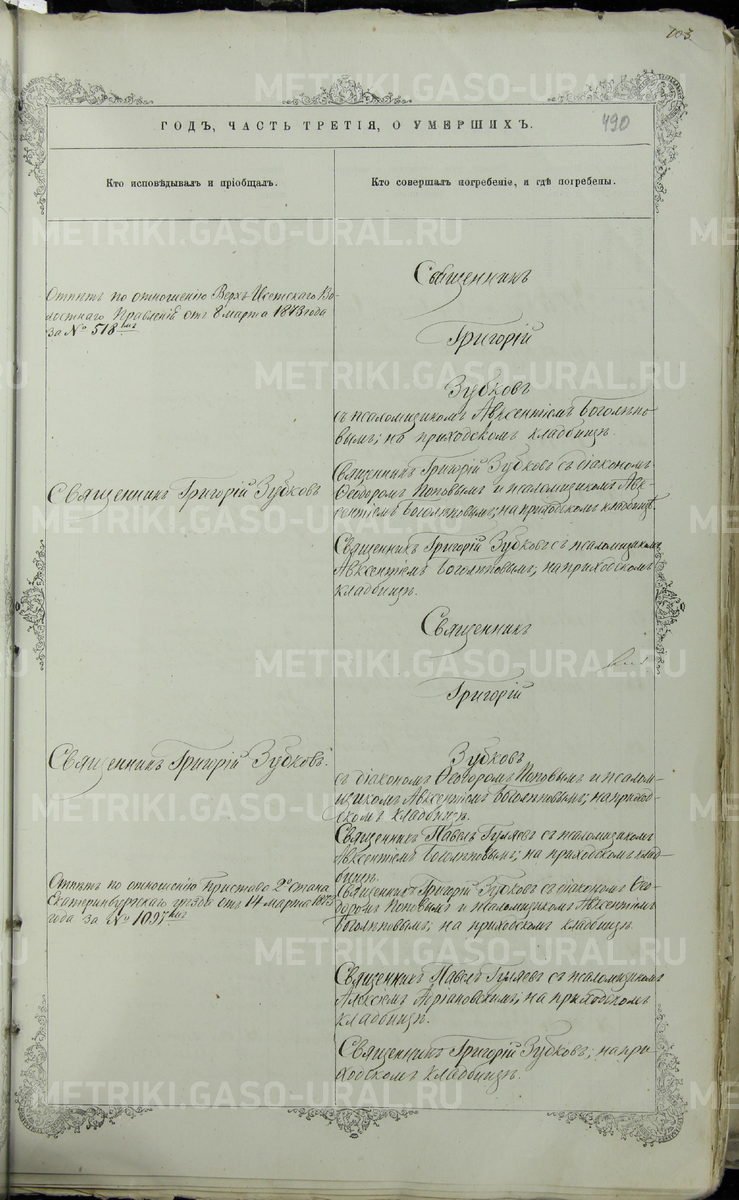 103
ГОДЪ, ЧАСТЬ ТРЕТІЯ, О УМЕРШИХЪ.
490
Кто исповѣдывалъ и пріобщалъ.
Кто совершалъ погребеніе, и гдѣ погребены.
Отпѣтъ по отношенію Верхъ Исетскаго Во-
лостнаго Правленія отъ 8 марта 1873 года
за № 518мъ
Священникъ Григорій Зубковъ
Священникъ Григорій Зубковъ.
Отпѣтъ по отношенію Пристава 2о стана
Екатеринбургскаго уѣзда отъ 14 марта 1873
года за № 1097мъ
Священникъ
Григорій
Зубковъ
съ псаломщикомъ Авксентіемъ Боголѣпо-
вымъ; на приходскомъ кладбищѣ.
Священникъ Григорій Зубковъ съ діакономъ
Ѳеодоромъ Поповымъ и псаломщикомъ Авк-
сентіемъ Боголѣповымъ; на приходскомъ кладбищѣ.
Священникъ Григорій Зубковъ съ псаломщикомъ
Авксентіемъ Боголѣповымъ; на приходскомъ
кладбищѣ.
Священникъ
Григорій
Зубковъ
съ діакономъ Ѳеодоромъ Поповымъ и псалом-
щикомъ Авксентіемъ Боголѣповымъ; на приход-
скомъ кладбищѣ.
Священникъ Павелъ Гуляевъ съ псаломщикомъ
Авксентіемъ Боголѣповымъ; на приходскомъ клад-
бищѣ.
Священникъ Григорій Зубковъ съ діакономъ Ѳео-
доромъ Поповымъ и псаломщикомъ Авксентіемъ
Боголѣповымъ; на приходскомъ кладбищѣ.
Священникъ Павелъ Гуляевъ съ псаломщикомъ
Алексіемъ на приходскомъ
кладбищѣ.
Священникъ Григорій Зубковъ; на при-
ходскомъ кладбищѣ.
METRIKI.GASO-URAL.RU